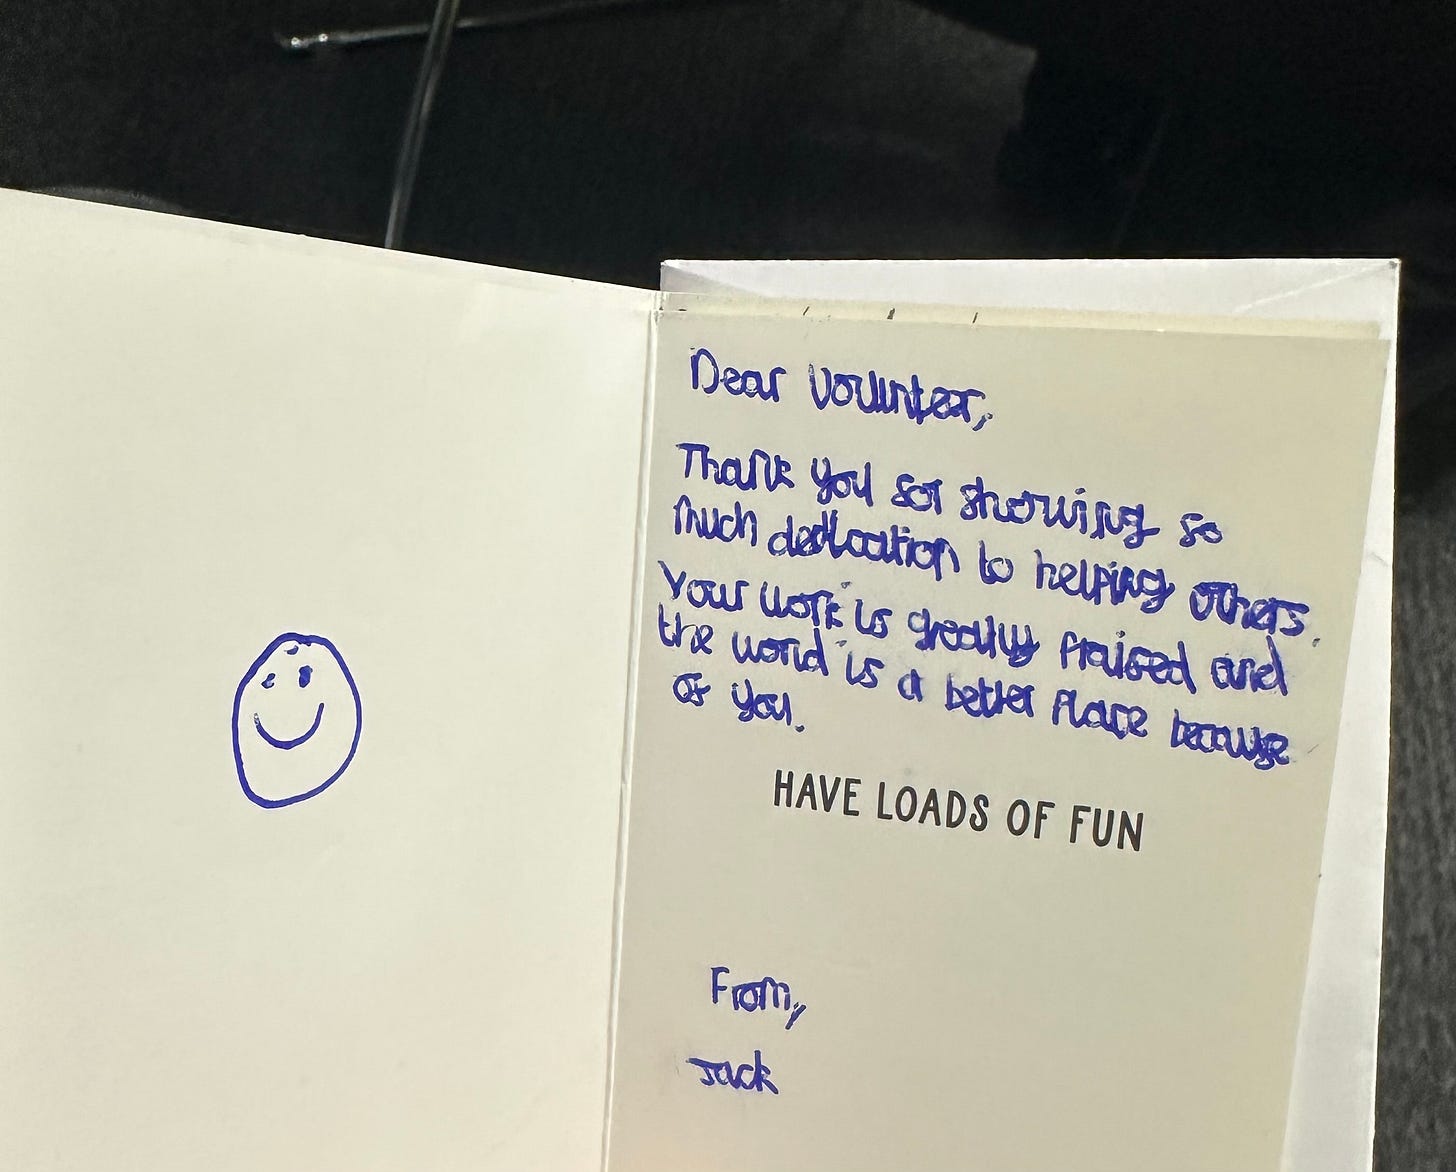 Dear Voulnteer,
Thank you for showing so
much dedication to helping others.
Your work is greatly praised and
the world is a better place because
of you.
HAVE LOADS OF FUN
From,
Jack